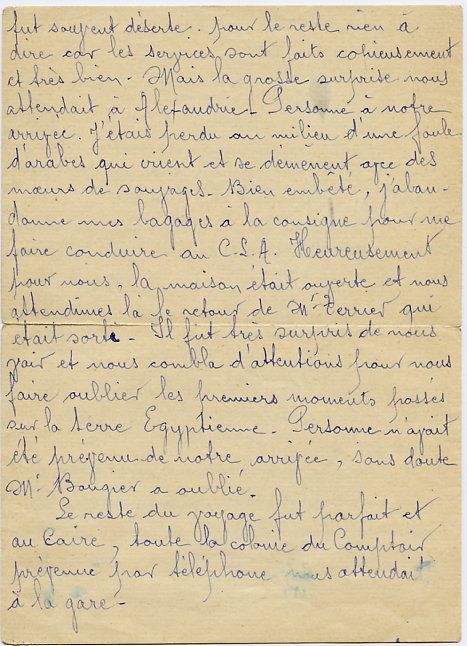 fut souvent déserte.. pour le reste rien à
dire car les services sont faits copieusement
et très bien - Mais la grosse surprise nous
attendait à Alexandrie - Personne à notre
arrivée. J'étais perdu au milieu d'une foule
d'arabes qui crient et se démènent avec des
mœurs de sauvages - Bien embêté, j'aban-
donne mes bagages à la consigne pour me
faire conduire au C.L.A. Heureusement
pour nous, la maison était ouverte et nous
attendîmes là le retour de Mr Terrier qui
était sorti - Il fut très surpris de nous
voir et nous combla d'attentions pour nous
faire oublier les premiers moments passés
sur la terre Egyptienne - Personne n'avait
été prévenu de notre arrivée, sans doute
Mr Bougier a oublié.
Le reste du voyage fut parfait et
au Caire, toute la colonie du Comptoir
prévenue par téléphone nous attendait
à la gare -